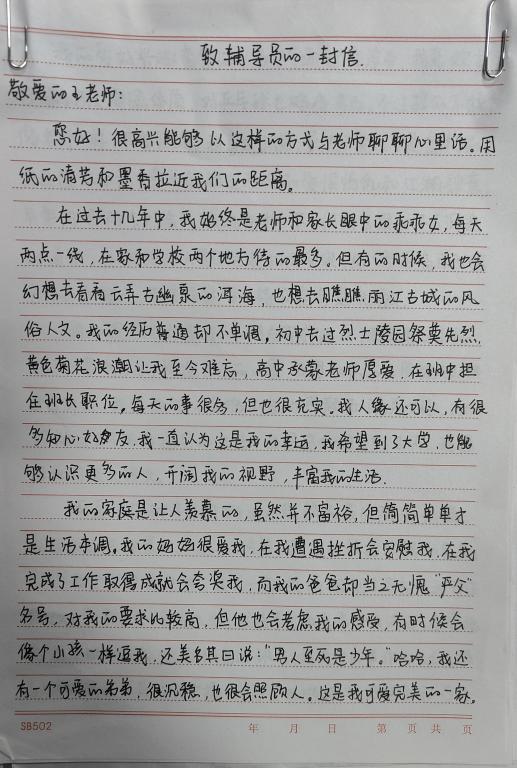 致辅导员的一封信.
敬爱的王老师:
您好!很高兴能够以这样的方式与老师聊聊心里话。用
纸的清芳和墨香拉近我们的距离。
在过去十几年中,我始终是老师和家长眼中的乖乖女,每天
两点一线,在家和学校两个地方待的最多。但有的时候,我也会
幻想去看看云弄古幽泉的洱海,也想去瞧瞧丽江古城的风
俗人文。我的经历普通却不单调,初中去过烈士陵园祭奠先烈,
黄色菊花浪潮让我至今难忘,高中承蒙老师厚爱,在班中担
任班长职位。每天的事很多,但也很充实。我人缘还可以,有很
多知心好朋友,我一直认为这是我的幸运,我希望到了大学,也能
够认识更多的人,开阔我的视野,丰富我的生活.
我的家庭是让人羡慕的,虽然并不富裕,但简简单单才
是生活本调。我的妈妈很爱我,在我遭遇挫折会安慰我,在我
完成了工作取得成就会夸奖我,而我的爸爸却当之无愧"严父"
名号,对我的要求比较高,但他也会考虑我的感受,有时候会
像个小孩一样逗我,还美名其曰说:"男人至死是少年。"哈哈,我还
有一个可爱的弟弟,很沉稳,也很会照顾人。这是我可爱完美的一家。
SB502 年 月 日 第 页 共 页